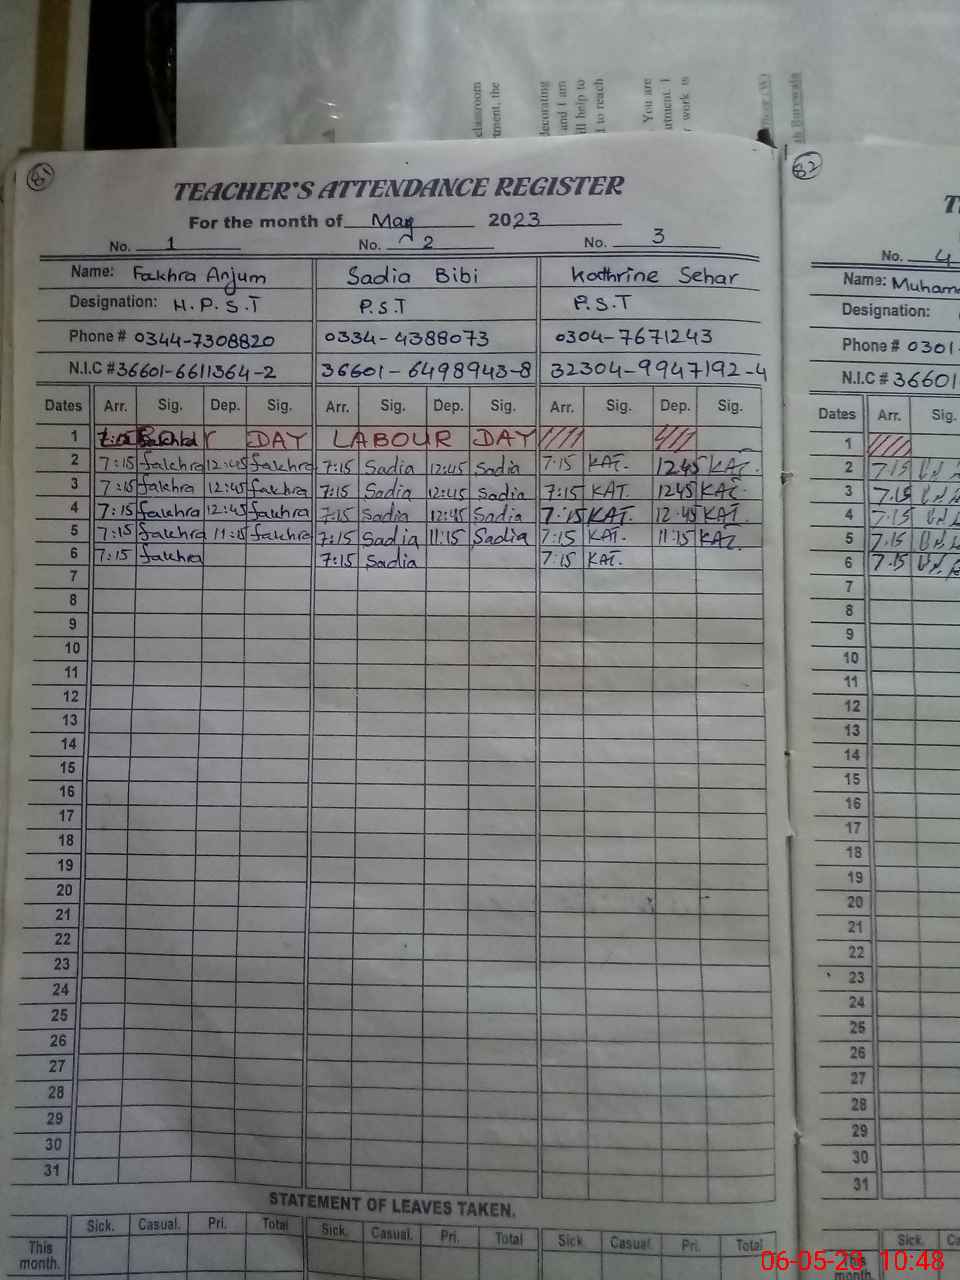 classroom
tment, the
decorating
and I am
ll help to
to reach
You are
work is
81
TEACHER'S ATTENDANCE REGISTER
For the month of May 2023
No. 1 No. 2 No. 3
Name: Fakhra Anjum Sadia Bibi Kathrine Sehar
Designation: H.P.S.T P.S.T P.S.T
Phone # 0344-7308820 0334-4388073 0304-7671243
N.I.C # 36601-6611364-2 36601-6498943-8 32304-9947192-4
Dates Arr. Sig. Dep. Sig. Arr. Sig. Dep. Sig. Arr. Sig. Dep. Sig.
1 DAY LABOUR DAY
2 7:15 fakhra 12:45 fakhra 7:15 Sadia 12:45 Sadia 7:15 KAT. 12 45 KAT.
3 7:15 fakhra 12:45 fakhra 7:15 Sadia 12:45 Sadia 7:15 KAT. 12 45 KAT.
4 7:15 fakhra 12:45 fakhra 7:15 Sadia 12:45 Sadia 7:15 KAT. 12:45 KAT.
5 7:15 fakhra 11:15 fakhra 7:15 Sadia 11:15 Sadia 7:15 KAT. 11:15 KAT.
6 7:15 fakhra 7:15 Sadia 7:15 KAT.
7
8
9
10
11
12
13
14
15
16
17
18
19
20
21
22
23
24
25
26
27
28
29
30
31
STATEMENT OF LEAVES TAKEN.
Sick. Casual. Pri. Total Sick. Casual. Pri. Total Sick. Casual. Pri. Total
This month.
82
T
No. 4
Name: Muham
Designation:
Phone # 0301-
N.I.C # 36601
Dates Arr. Sig.
1
2 7.15
3 7.15
4 7.15
5 7.15
6 7.15
7
8
9
10
11
12
13
14
15
16
17
18
19
20
21
22
23
24
25
26
27
28
29
30
31
Sick. Ca
This month.
06-05-23 10:48